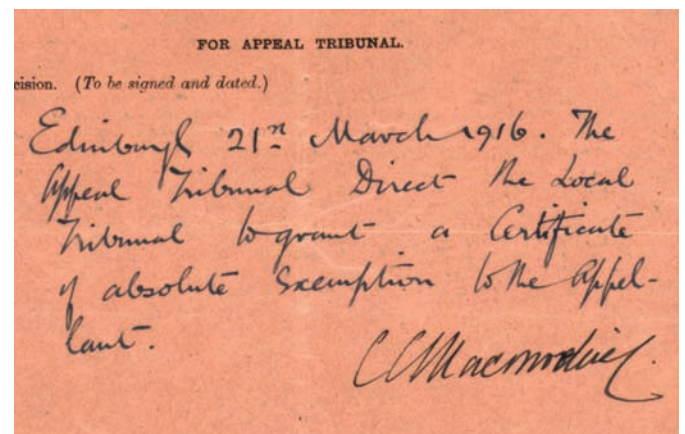 FOR APPEAL TRIBUNAL.
cision. (To be signed and dated.)
Edinburgh 21st March 1916. The
Appeal Tribunal Direct the Local
Tribunal to grant a Certificate
of absolute Exemption to the Appel-
lant.